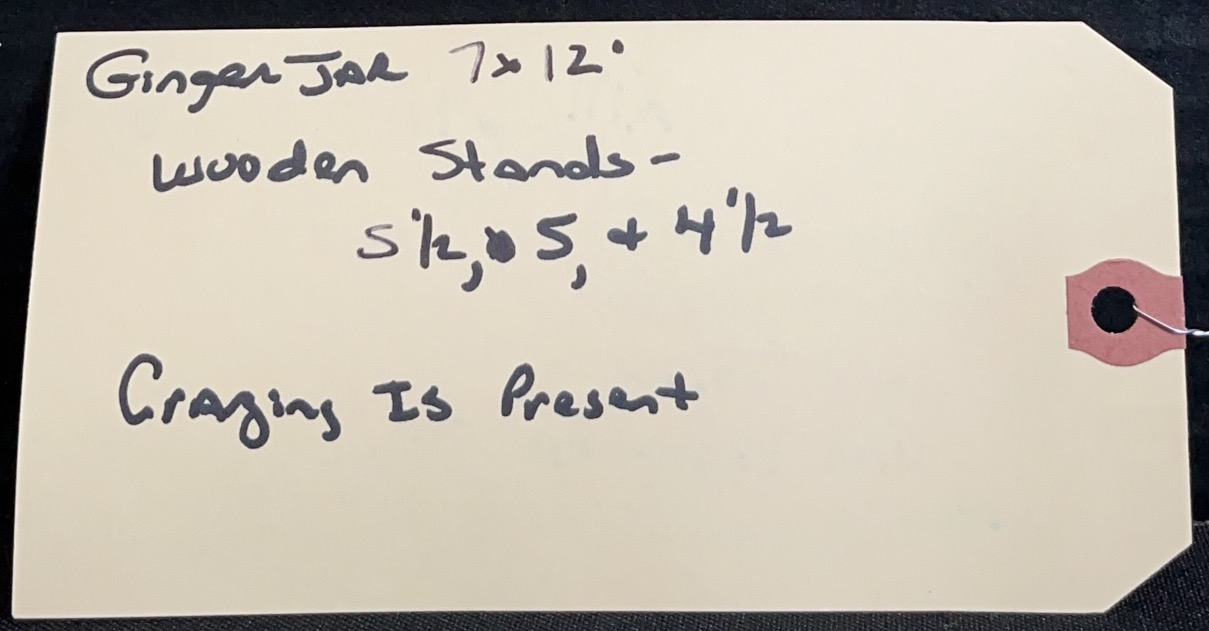 Ginger Jar 7x12"
Wooden Stands-
5 1/2, 5, + 4 1/2
Crazing Is Present